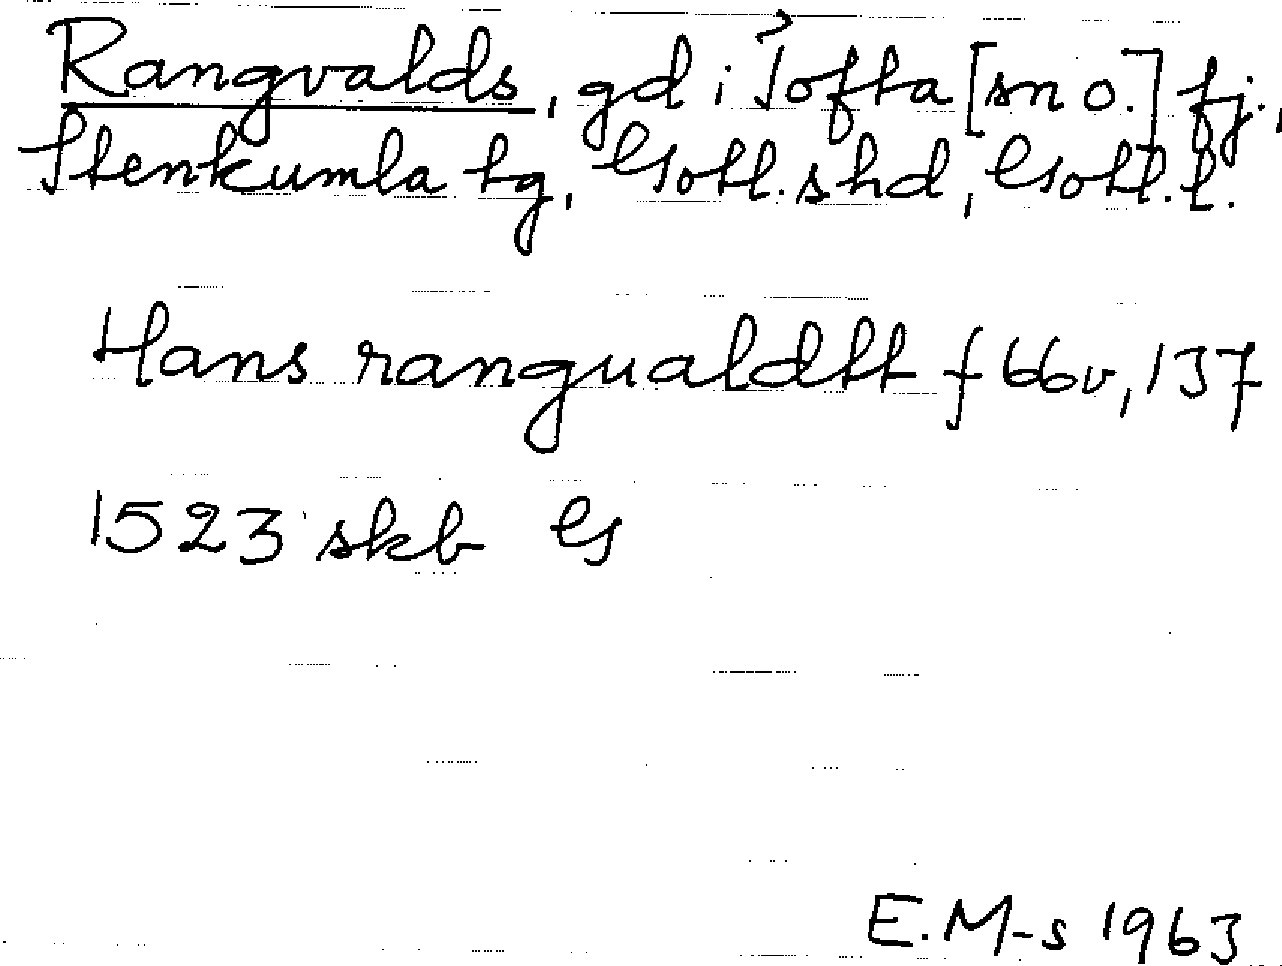 Rangvalds, gd i Tofta [sn o.] fj.,
Stenkumla tg, Gotl. s hd, Gotl. l.
Hans rangualdtt f 66v, 137
1523 skb G
E. M-s 1963